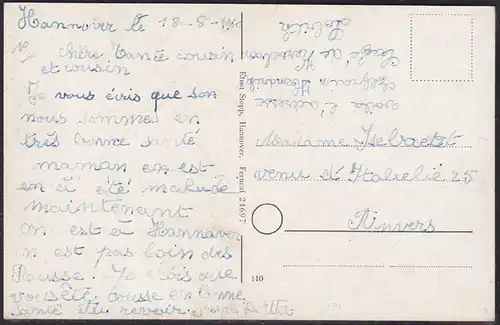 Hannover lé 18-8-
chère Tante cousin
et cousin
Je vous écris que son
nous sommes en
très bonne santé
maman en est
en a été malade
mainteneant
on est à Hannover
in est pas loin des
Rousse. Je crois que
vous ête tousse en bonne
santé étu revoir
voila l'adresse
Ernst Stopp, Hannover, Fernruf 24697
110
Madame
venu d'Italielie 25
Anvers